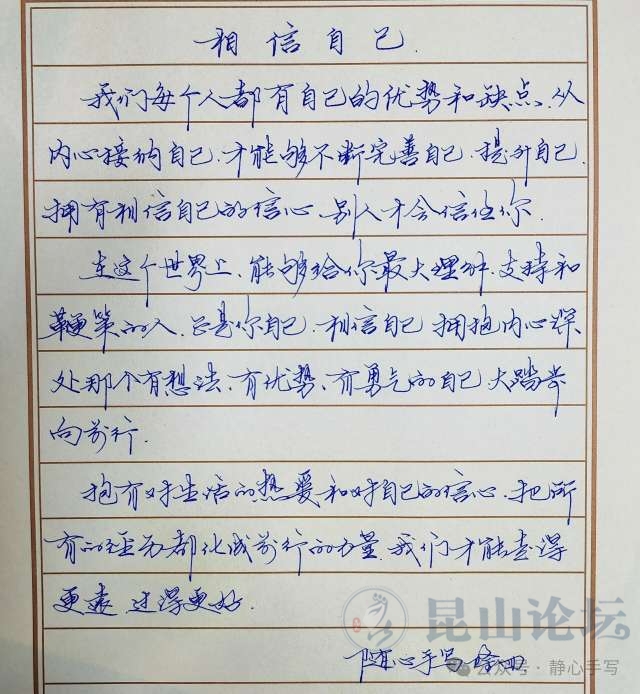 相信自己.
我们每个人都有自己的优势和缺点.从
内心接纳自己.才能够不断完善自己.提升自己.
拥有相信自己的信心.别人才会信任你.
在这个世界上、能够给你最大理解.支持和
鞭策的人.总是你自己.相信自己 拥抱内心深
处那个有想法、有优势、有勇气的自己 大踏步
向前行.
抱有对生活的热爱和对自己的信心.把所
有的经历都化成前行的力量.我们才能走得
更远 过得更好.
随心手写
昆山论坛
公众号·静心手写